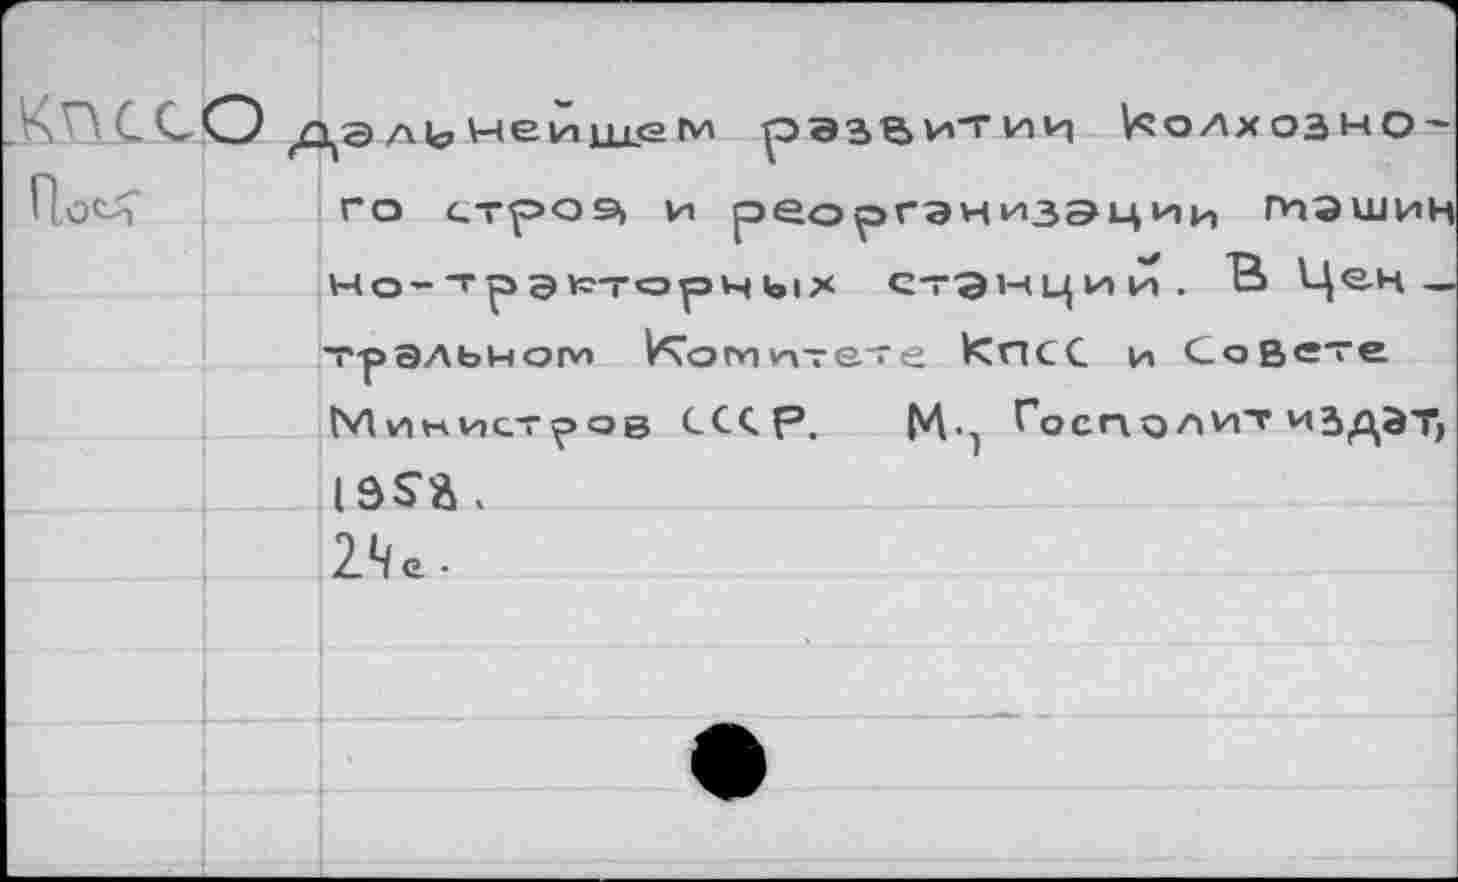 КПСС О дальнейшем развитии колхозно-
Пост го строя и реорганизации машин
но-тракторных станций. В Цен-
тральном Комитете КПСС и Совете
Министров СССР. М., Госполитиздат,
1958.
24с.